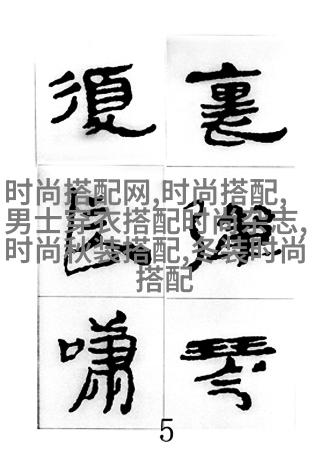 裏彈琴
復長嘯
时尚搭配网,时尚搭配,
男士穿衣搭配时尚杂志,
时尚秋装搭配,冬装时尚
搭配
5